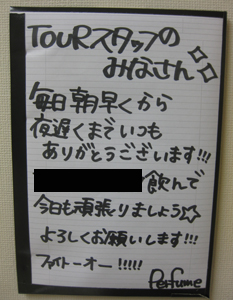 TOURスタッフの
みなさん
毎日朝早くから
夜遅くまでいつも
ありがとうございます!!!
飲んで
今日も頑張りましょう☆
よろしくお願いします!!!
ファイトーオー!!!!!
Perfume